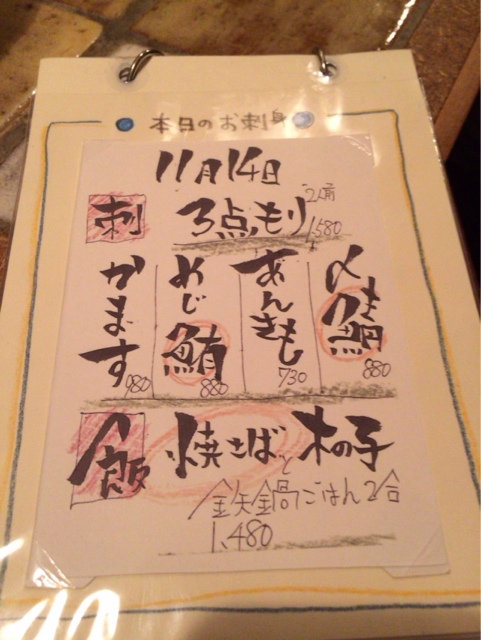 本日のお刺身
11月14日
刺 3点もり 2人前 1,580
〆鯖 880
あんきも 730
めじ鮪 880
かます 980
飯 焼さばと木の子
鉄鍋ごはん2合
1,480